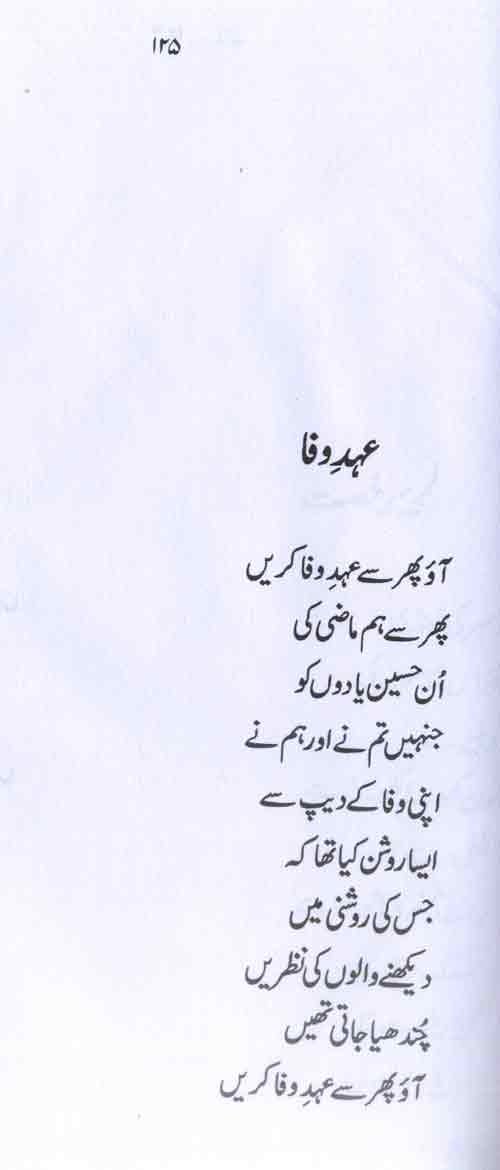 ۱۲۵
عہدِ وفا
آؤ پھر سے عہدِ وفا کریں
پھر سے ہم ماضی کی
اُن حسین یادوں کو
جنہیں تم نے اور ہم نے
اپنی وفا کے دیپ سے
ایسا روشن کیا تھا کہ
جس کی روشنی میں
دیکھنے والوں کی نظریں
چُندھیا جاتی تھیں
آؤ پھر سے عہدِ وفا کریں